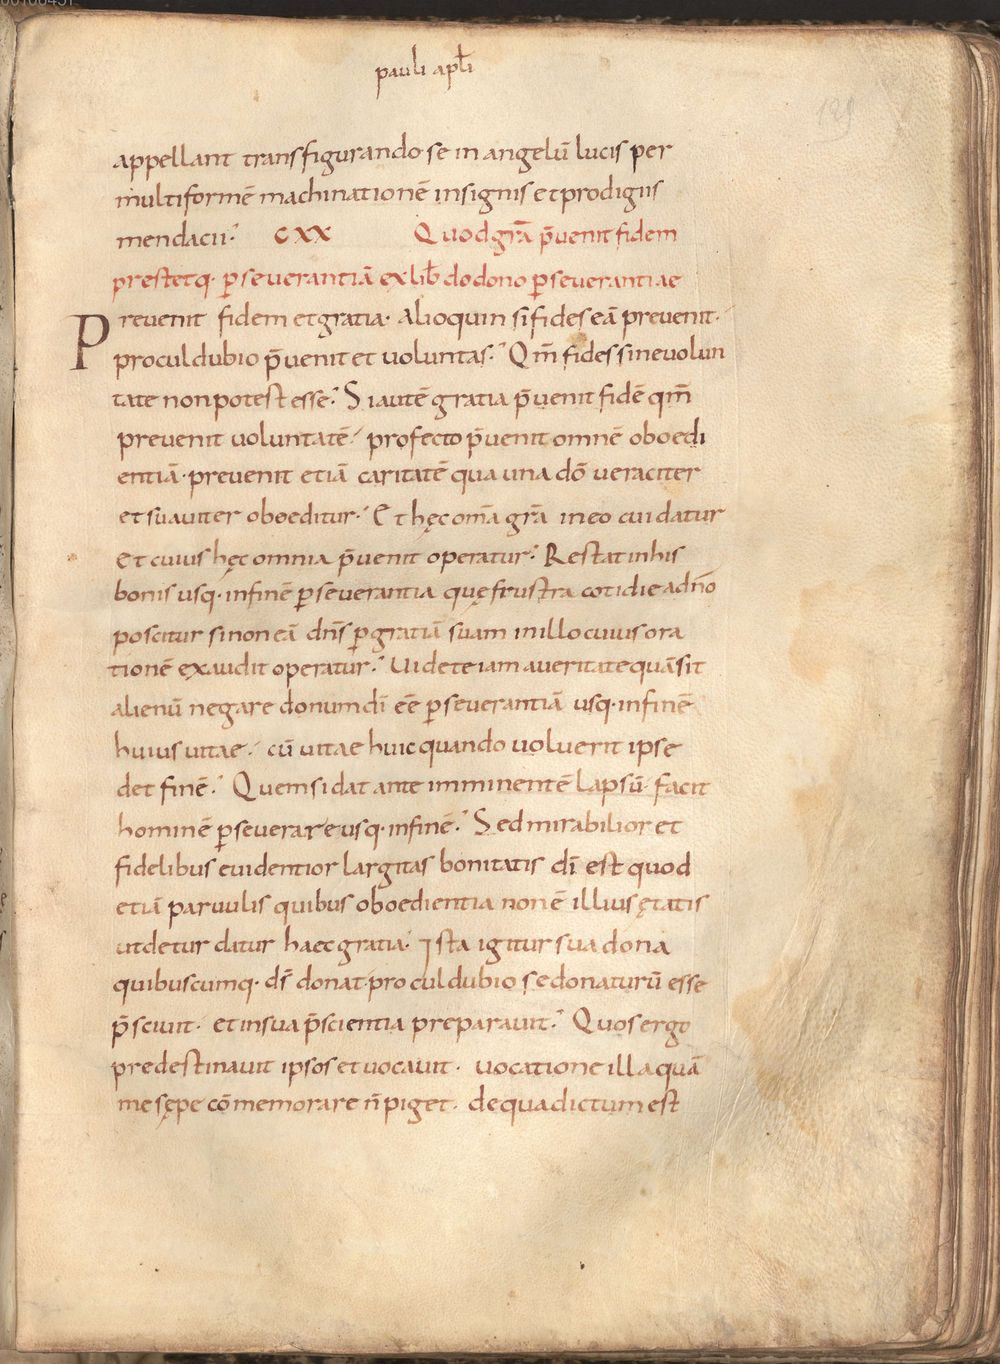 pauli apłi
189
appellant transfigurando se in angelū lucis per
multiformē machinationē in signis et prodigiis
mendacii. CXX Quod grā p̄uenit fidem
prestetq· ꝑseuerantiā ex lib̄ do dono ꝑseuerantiae
Preuenit fidem et gratia· Alioquin si fides eā preuenit·
procul dubio p̄uenit et uoluntas. Qm̄ fides sine uolun
tate non potest esse. Si autē gratia p̄uenit fidē qm̄
preuenit uoluntatē· profecto p̄uenit omnē oboedi
entiā· preuenit etiā caritatē qua una dō ueraciter
et suauiter oboeditur. Et hęc om̄a grā in eo cui datur
Et cuius hęc omnia p̄uenit operatur. Restat in his
bonis usq· in finē ꝑseuerantia quę frustra cotidie a dn̄o
poscitur si non eā dn̄s ꝑ gratiā suam in illo cuius ora
tionē exaudit operatur. Uidete iam a ueritate quā sit
alienū negare donum dī eē ꝑseuerantiā usq· in finē
huius uitae· cū uitae huic quando uoluerit ipse
det finē. Quem si dat ante imminentē lapsū· facit
hominē ꝑseuerare usq· in finē. Sed mirabilior et
fidelibus euidentior largitas bonitatis dī est quod
etiā paruulis quibus oboedientia non ē illius ętatis
ut detur datur haec gratia. Ista igitur sua dona
quibuscumq· ds̄ donat· procul dubio se donaturū esse
p̄sciuit· et in sua p̄scientia preparauit. Quos ergo
predestinauit ipsos et uocauit· uocatione illa quā
me sępe cōmemorare n̄ piget· de qua dictum est